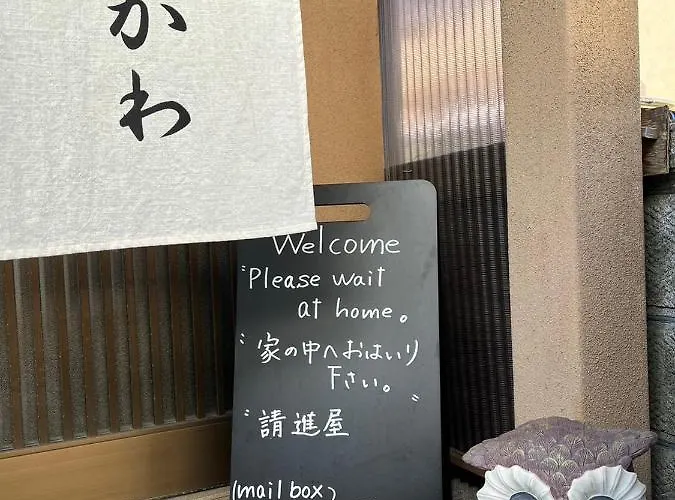 かわ
Welcome
"Please wait
at home。
"家の中へおはいり
下さい。"
"請進屋
(mail box)